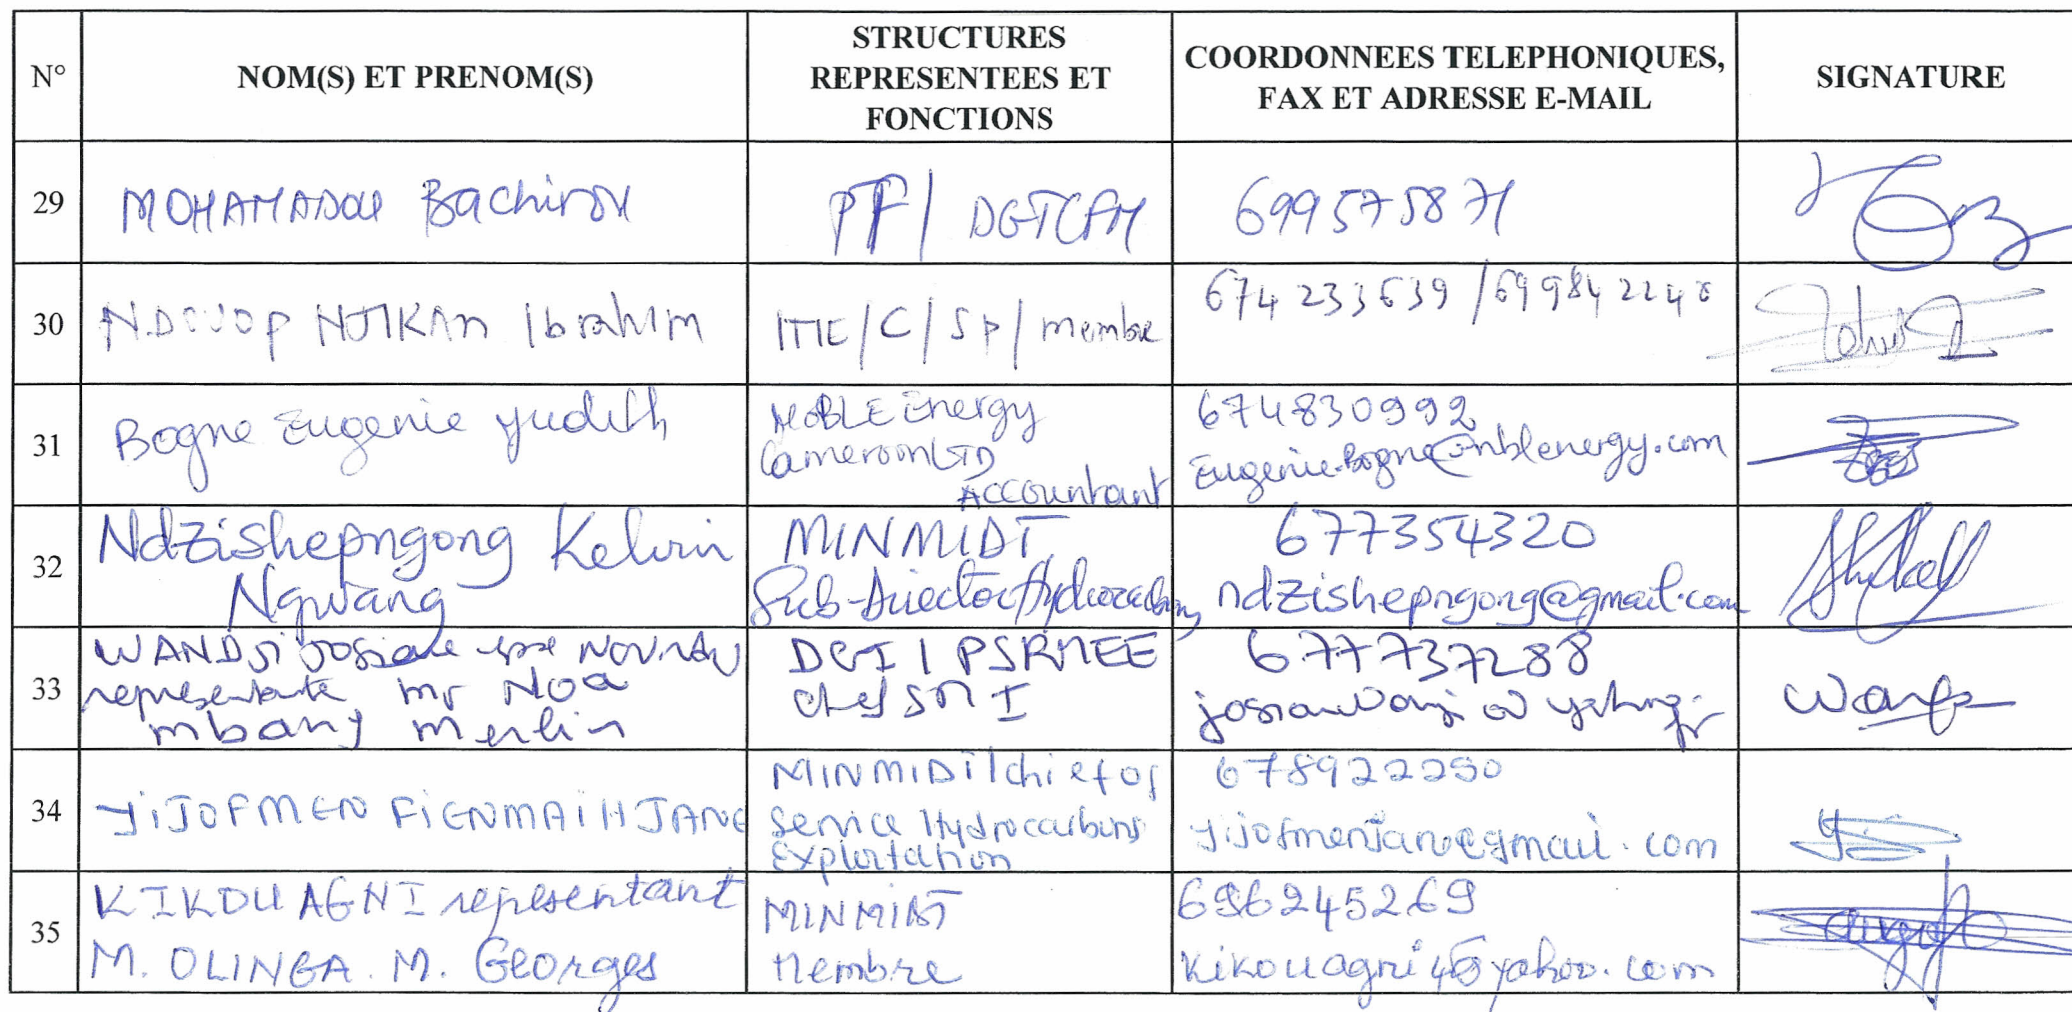 N°
NOM(S) ET PRENOM(S)
STRUCTURES
REPRESENTEES ET
FONCTIONS
COORDONNEES TELEPHONIQUES,
FAX ET ADRESSE E-MAIL
SIGNATURE
29
MOHAMADOU Bachirou
PTF/ DGTCFM
699575871
30
NJIKAM Ibrahim
ITIE/C/SP/membre
674 233639 /
31
Bogne Eugenie Judith
NOBLE Energy
Cameroon LTD
Accountant
674830992
Eugenie.Bogne@nblenergy.com
32
Ndzishepngong Kelvin
Ngwang
MINMIDT
Sub-Director Hydrocarbons
677354320
ndzishepngong@gmail.com
33
WANDJI Josiane epse
representante mr Noa
mbany merlin
DGI / PSRMEE
chef
677737288
34
YIJOFMEN FIENMAIH JANE
MINMIDT/chief of
Service Hydrocarbons
Exploitation
678922250
yijofmenjane@gmail.com
35
KIKOUAGNI representant
M. OLINGA. M. Georges
MINMIDT
Membre
696245269
yahoo.com